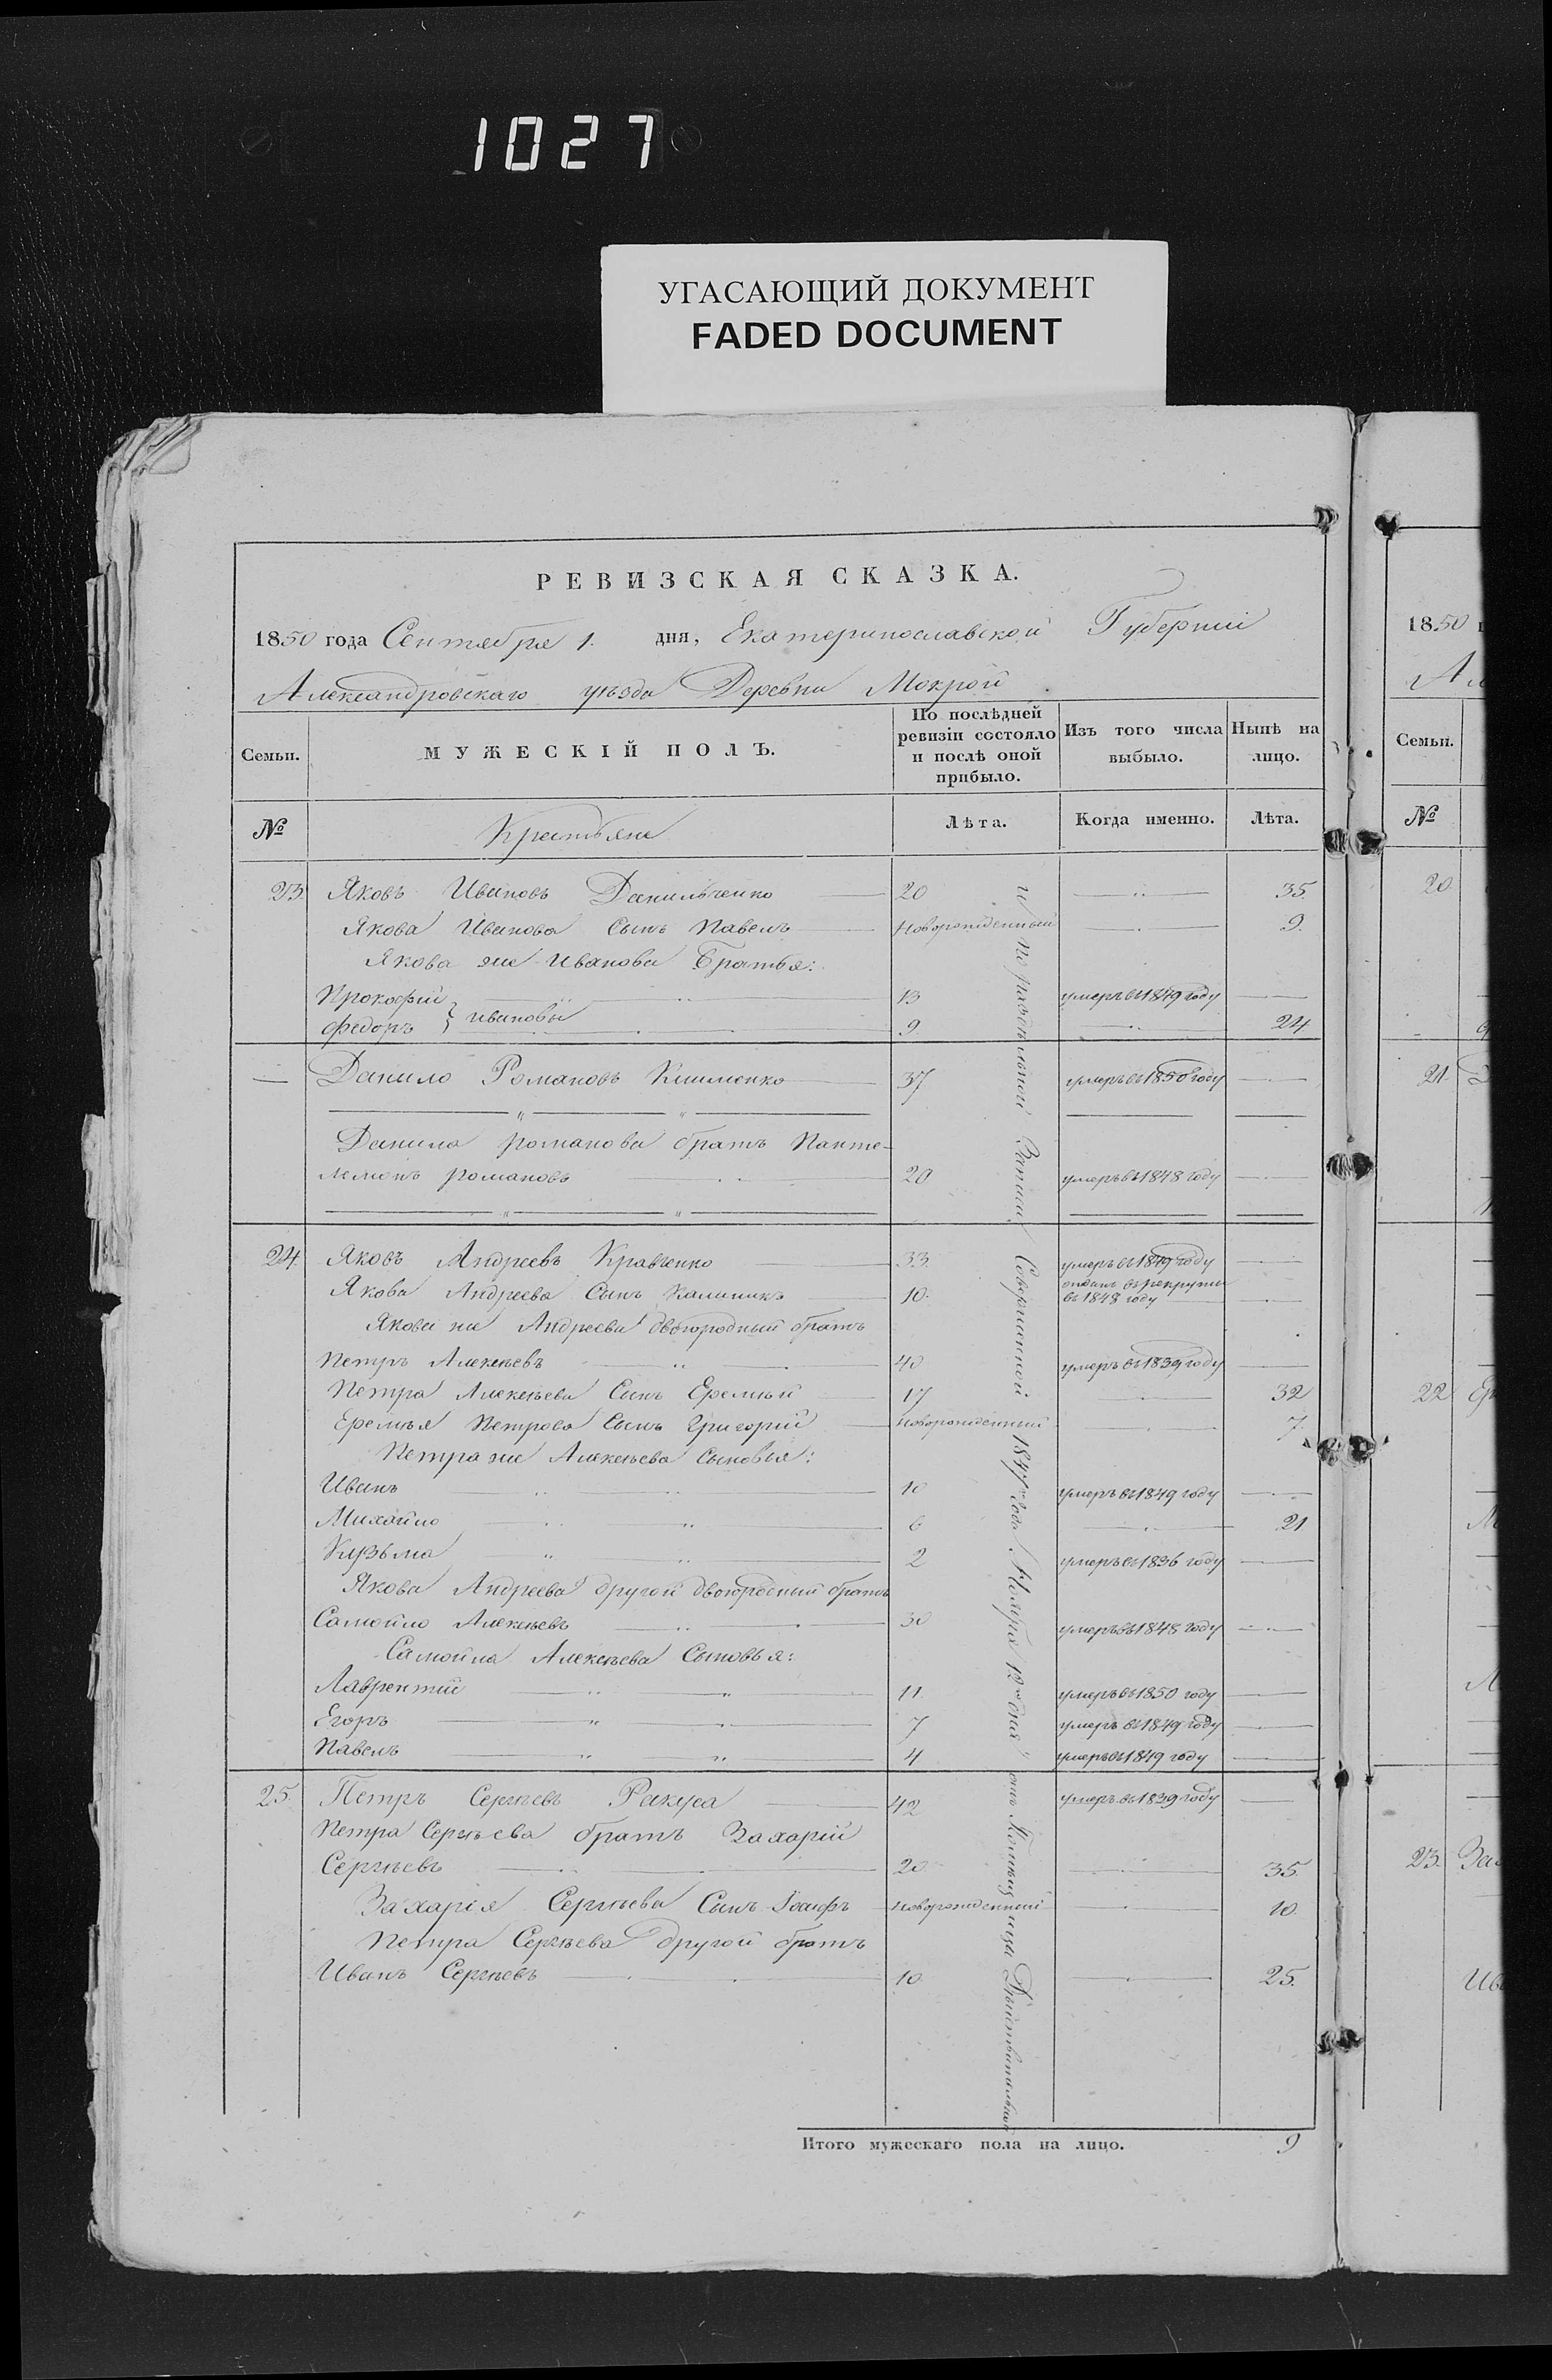 1027
УГАСАЮЩИЙ ДОКУМЕНТ
FADED DOCUMENT
РЕВИЗСКАЯ СКАЗКА.
1850 года Сентября 1. дня, Екатеринославской Губернии
Александровскаго уѣзда Деревни Мокрой
Семьи. МУЖЕСКІЙ ПОЛЪ. По послѣдней ревизіи состояло и послѣ оной прибыло. Изъ того числа выбыло. Нынѣ на лицо.
№ Крестьяне Лѣта. Когда именно. Лѣта.
23 Яковъ Ивановъ Данильченко 20 35.
Якова Иванова Сынъ Павелъ Новорожденный 9.
Якова же Иванова Братья:
Прокофій } Ивановы 13 умеръ въ 1849 году
Федоръ 9 24
Данило Романовъ Клименко 37 умеръ въ 1850 году
Данила Романова братъ Панте-
лемонъ Романовъ 20 умеръ въ 1848 году
24 Яковъ Андреевъ Кравченко 33. умеръ въ 1849 году
Якова Андреева Сынъ Калиникъ 10. отданъ въ рекруты въ 1848 году
Якова же Андреева двоюродный братъ
Петръ Алексѣевъ 40 умеръ въ 1839 году
Петра Алексѣева Сынъ Еремѣй 17 32
Еремѣя Петрова Сынъ Григорій Новорожденный 7.
Петра же Алексѣева Сыновья:
Иванъ 10 умеръ въ 1849 году
Михайло 6 21
Кузьма 2 умеръ въ 1836 году
Якова Андреева другой двоюродный братъ
Самойло Алексѣевъ 30 умеръ въ 1848 году
Самойла Алексѣева Сыновья:
Лаврентій 11 умеръ въ 1850 году
Егоръ 7 умеръ въ 1849 году
Павелъ 4 умеръ въ 1849 году
25. Петръ Сергѣевъ Ракуса 42 умеръ въ 1839 году
Петра Сергѣева братъ Захарій
Сергѣевъ 20 35.
Захарія Сергѣева Сынъ Іосифъ Новорожденный 10.
Петра Сергѣева другой братъ
Иванъ Сергѣевъ 10 25.
и по раздѣльной Записи Совершенной 1847го года Ноября 12го дня отъ
Итого мужескаго пола на лицо. 9
1850
Семьи.
№
20
21.
22
23.